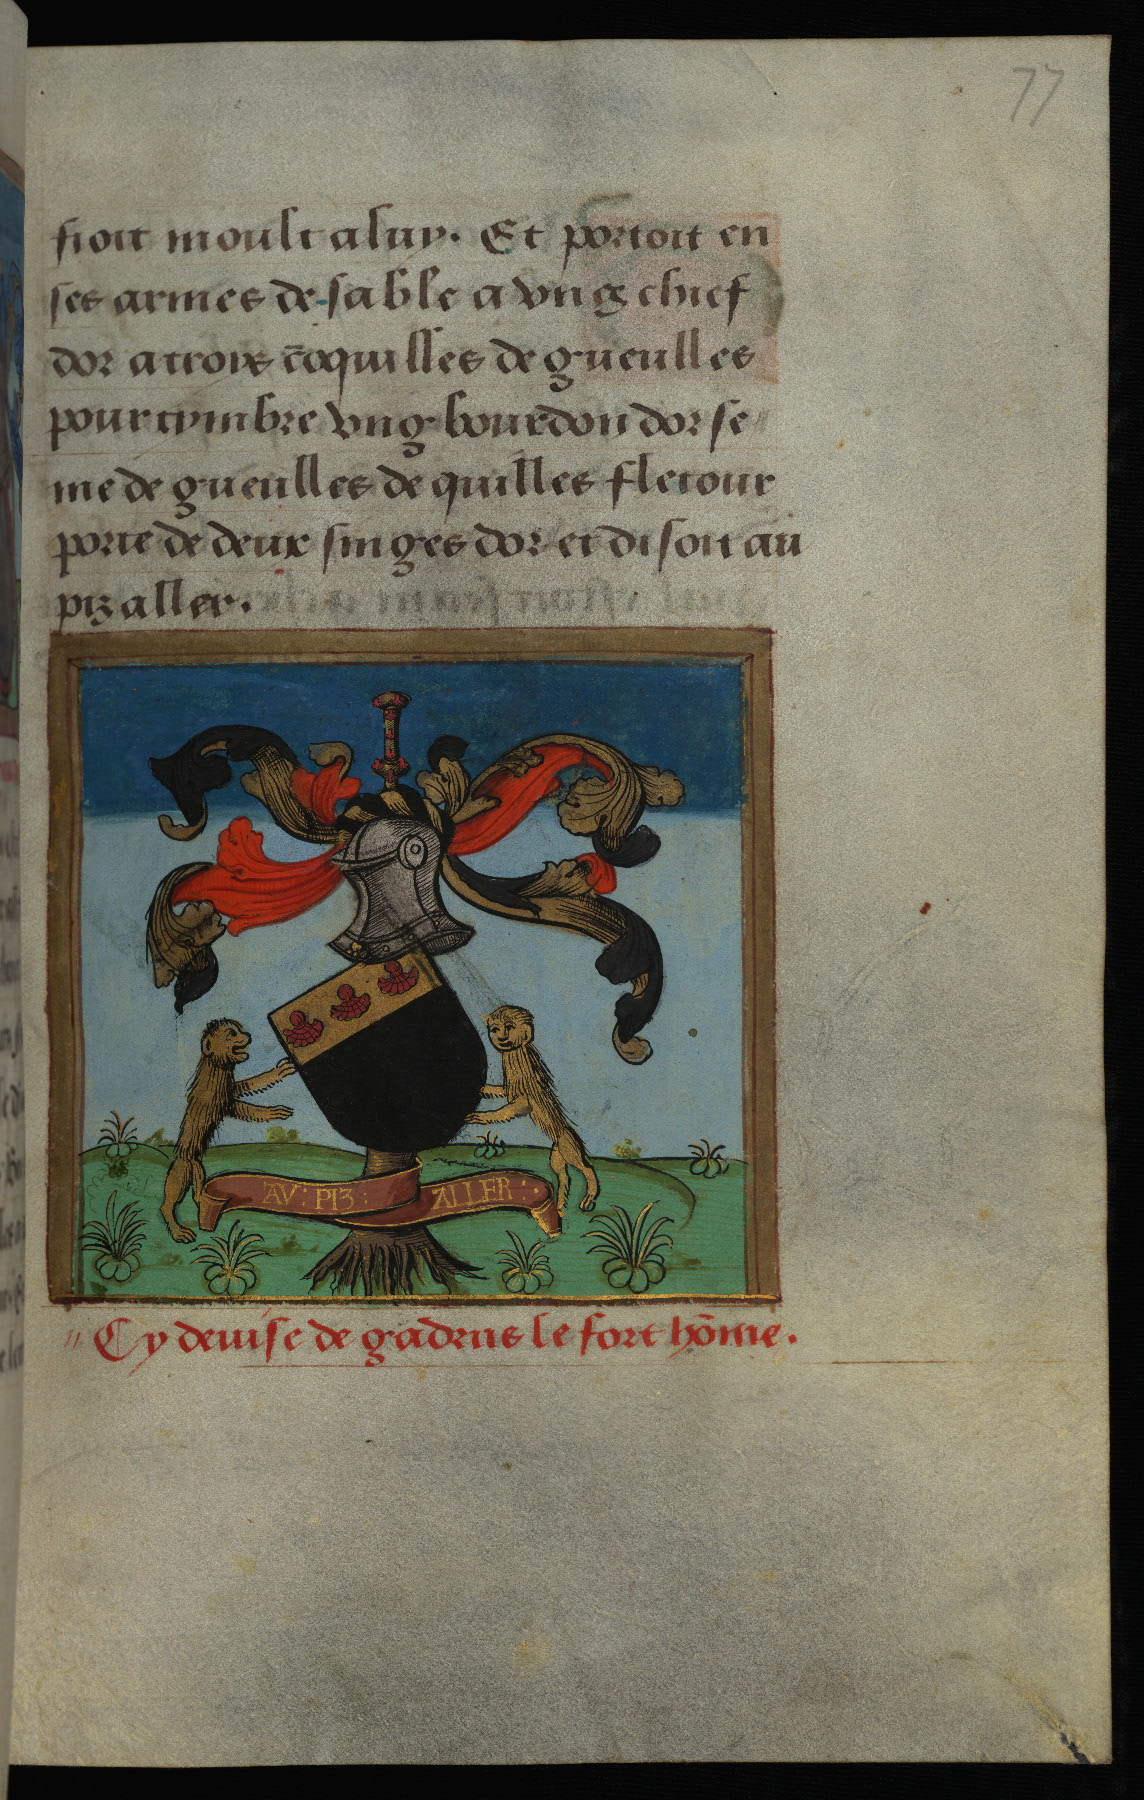 77
fioit moult a luy. Et portoit en
ses armes de sable a vng chief
dor a trois c̄oquilles de gueulles
pour tymbre vng bourdon dor se〃
me de gueulles de quilles fletour
porte de deux singes dor et disoit au
piz aller.
AV : PIZ : ALLER :
〃 Cy deuise de gadrus le fort hōme.